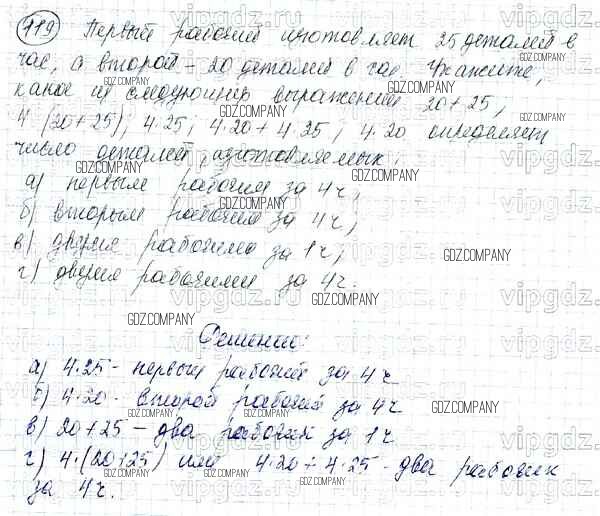 119 Первый рабочий изготовляет 25 деталей в
час, а второй - 20 деталей в час. Укажите,
какое из следующих выражений 20+25,
4·(20+25); 4·25; 4·20+4·25; 4·20 определяет
число деталей, изготовляемых:
а) первым рабочим за 4 ч;
б) вторым рабочим за 4 ч;
в) двумя рабочими за 1 ч;
г) двумя рабочими за 4 ч.
Решение:
а) 4·25 - первый рабочий за 4 ч
б) 4·20 - второй рабочий за 4 ч
в) 20+25 - два рабочих за 1 ч
г) 4·(20+25) или 4·20+4·25 - два рабочих
за 4 ч.